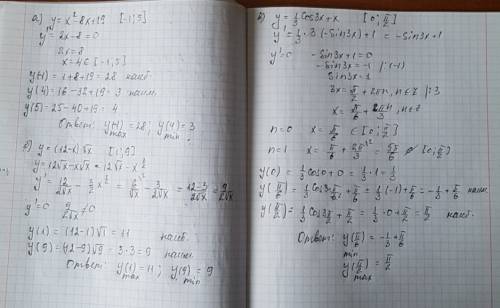 а) y = x² - 8x + 19   [-1; 5]
y' = 2x - 8 = 0
2x = 8
x = 4 ∈ [-1; 5]
y(-1) = 1 + 8 + 19 = 28 наиб.
y(4) = 16 - 32 + 19 = 3 наим.
y(5) = 25 - 40 + 19 = 4
Ответ: y(-1) = 28; y(4) = 3
max min
б) y = (12 - x)√x   [1; 9]
y = 12√x - x√x = 12√x - x^(3/2)
y' = 12/(2√x) - 3/2 x^(1/2) =
y' = 0   9/(2√x) ≠ 0
y(1) = (12 - 1)√1 = 11 наиб.
y(9) = (12 - 9)√9 = 3·3 = 9 наим.
Ответ: y(1) = 11; y(9) = 9
max min
в) y = 1/3 cos3x + x   [0; π/2]
y' = 1/3 · 3 (-sin3x) + 1 = -sin3x + 1
y' = 0   -sin3x + 1 = 0
-sin3x = -1 | :(-1)
sin3x = 1
3x = π/2 + 2πn, n∈Z | :3
x = π/6 + 2πn/3, n∈Z
n = 0   x = π/6 ∈ [0; π/2]
n = 1   x = π/6 + 2π/3 = 5π/6 ∉ [0; π/2]
y(0) = 1/3 cos0 + 0 = 1/3 · 1 = 1/3
y(π/6) = 1/3 cos3·π/6 + π/6 = 1/3 · (-1) + π/6 = -1/3 + π/6 наим.
y(π/2) = 1/3 cos3·π/2 + π/2 = 1/3 · 0 + π/2 = π/2 наиб.
Ответ: y(π/6) = -1/3 + π/6
min
y(π/2) = π/2
max